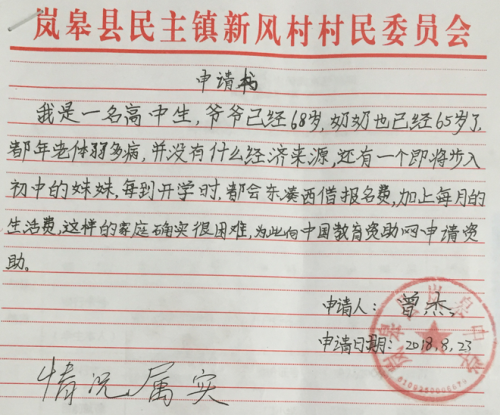 岚皋县民主镇新风村村民委员会
申请书
我是一名高中生,爷爷已经68岁,奶奶也已经65岁了,
都年老体弱多病,并没有什么经济来源,还有一个即将步入
初中的妹妹,每到开学时,都会东凑西借报名费,加上每月的
生活费,这样的家庭确实很困难,为此向中国教育资助网申请资
助。
申请人:曾杰
申请日期:2018.8.23
情况属实